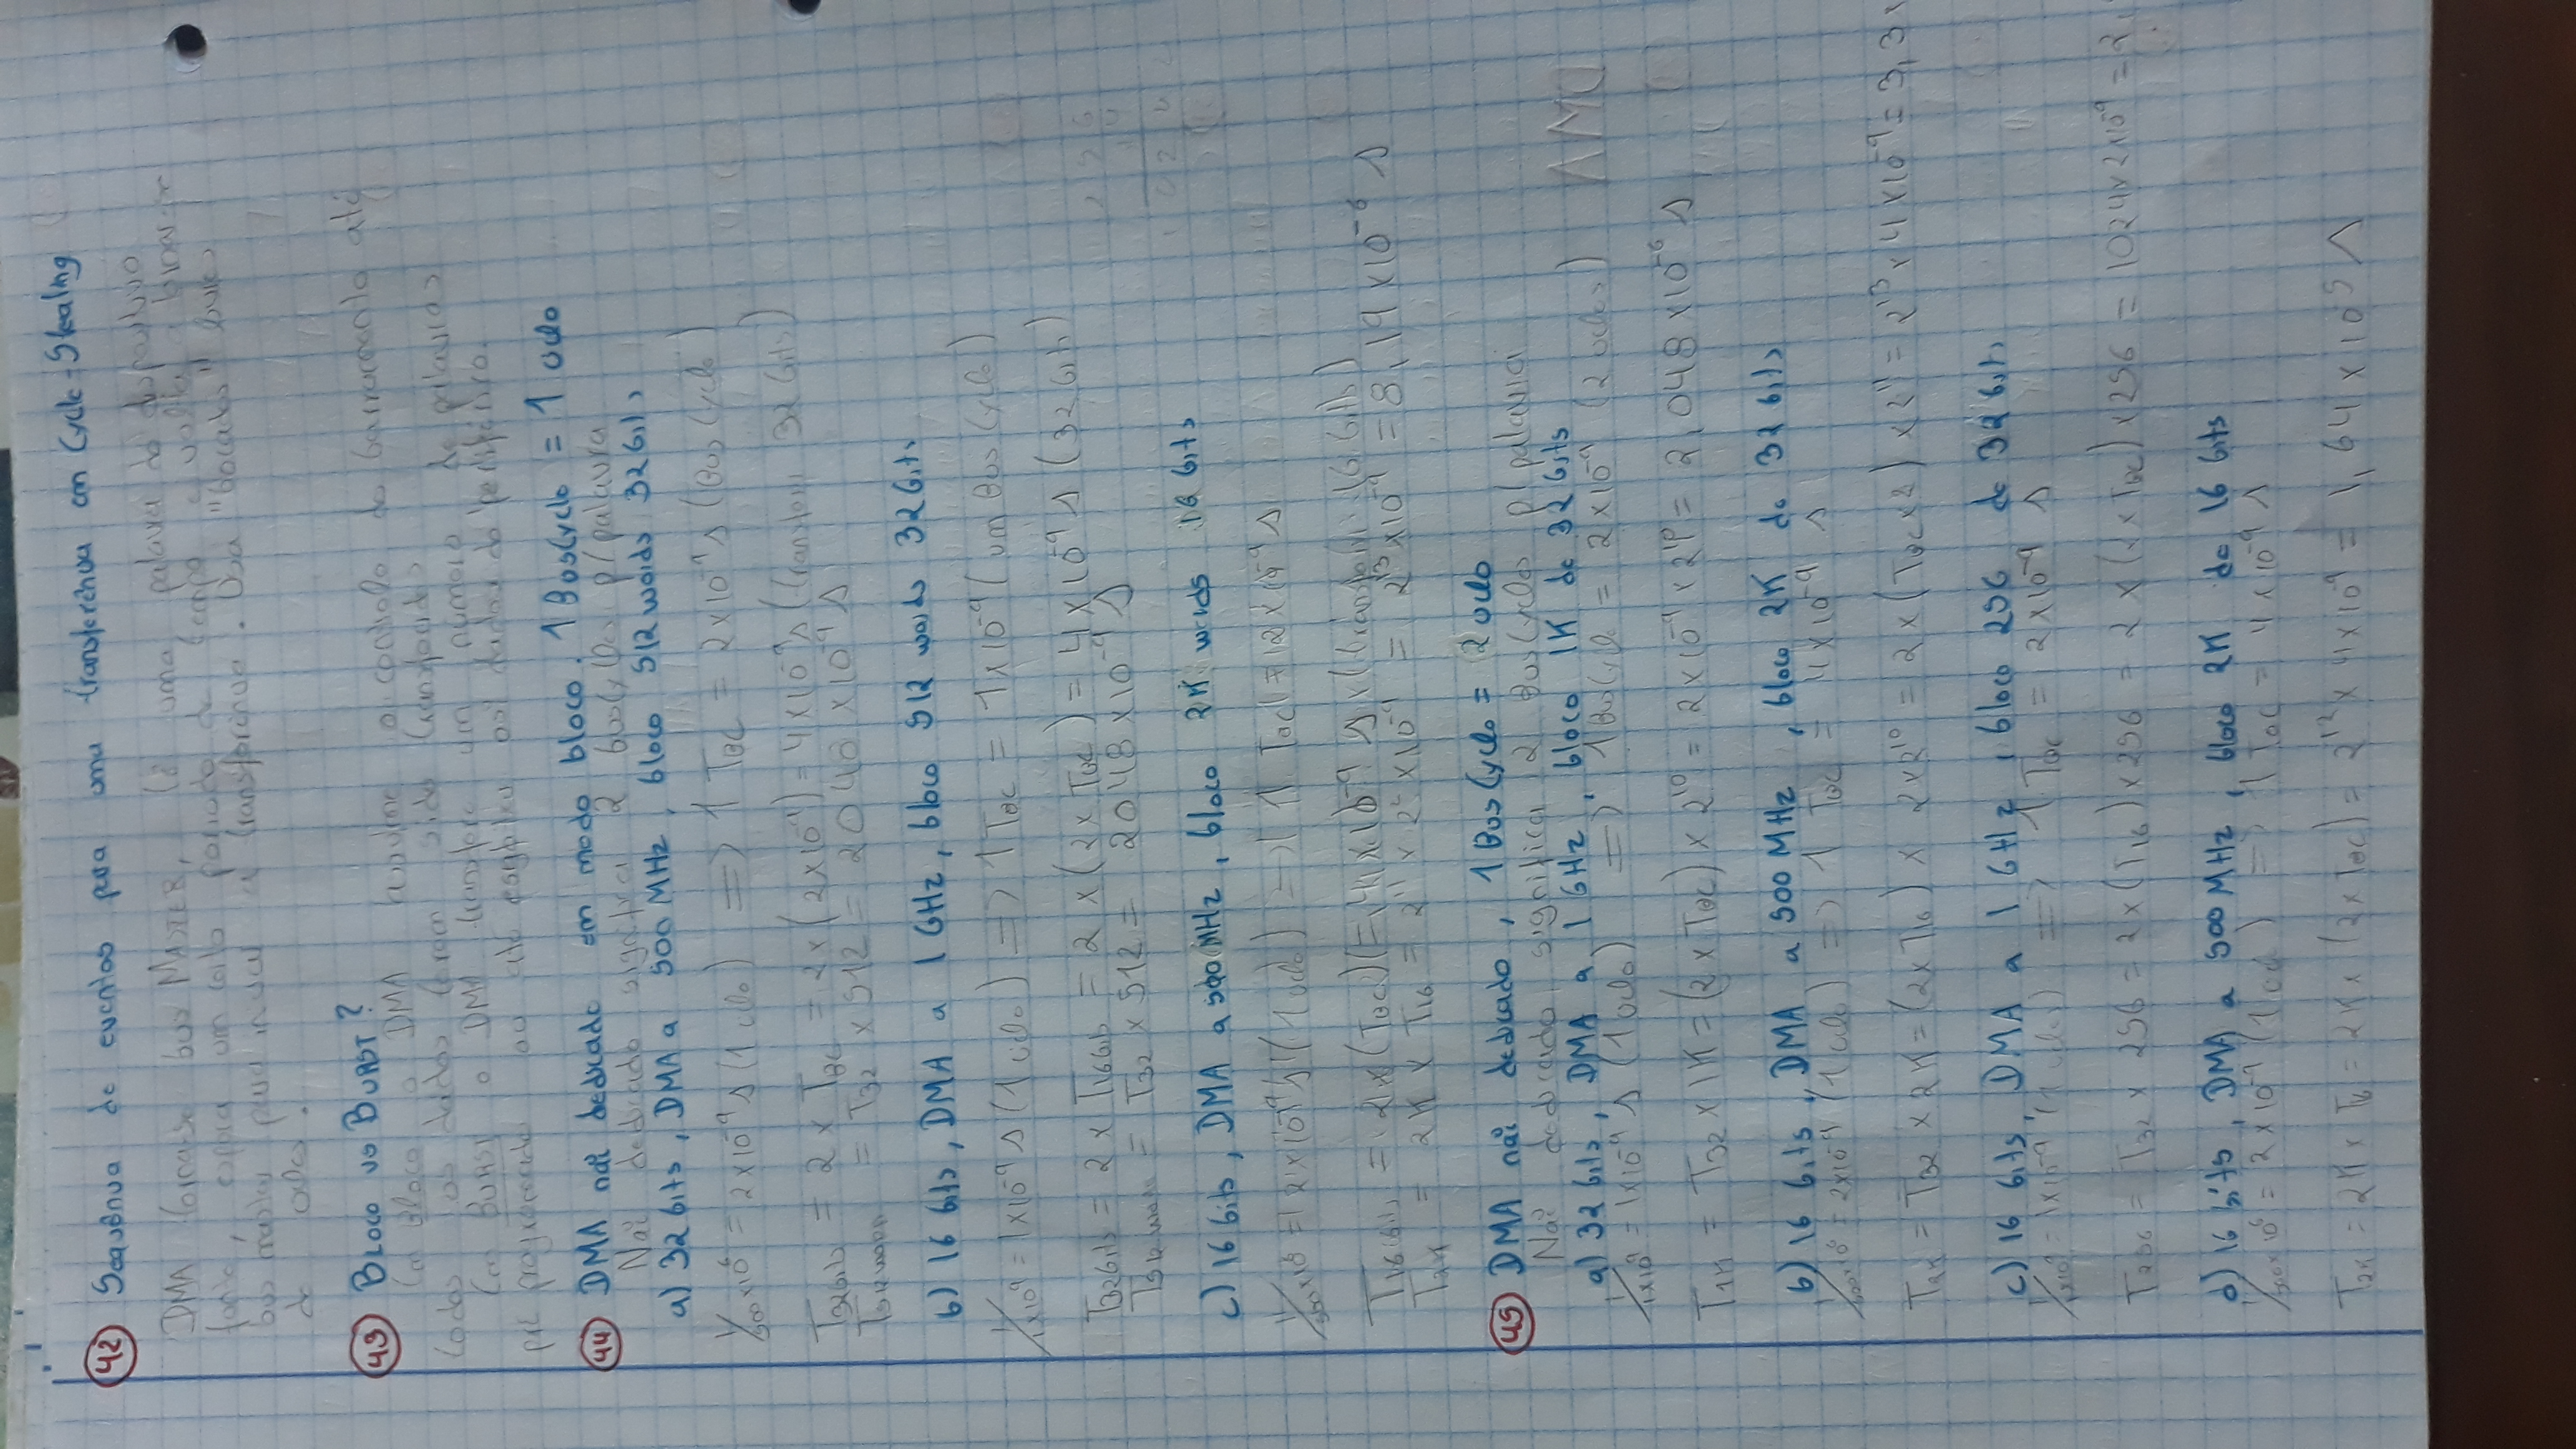 42 Sequência de eventos para uma transferência em Cycle-Stealing
DMA torna-se bus MASTER, lê uma palavra do dispositivo
fonte, espera um certo período de tempo e volta a tornar-se
bus master para iniciar a transferência. Usa "bocados"
de ciclos.
43 BLOCO vs BURST?
Em Bloco o DMA assume o controlo do barramento até
todos os dados terem sido transferidos
Em BURST o DMA transfere um número de palavras
pré programado ou até esgotar os dados do periférico.
44 DMA não dedicado em modo bloco. 1 BusCycle = 1 ciclo
Não dedicado significa 2 buscycles p/ palavra
a) 32 bits, DMA a 500 MHz, bloco 512 words 32 bits
1/500×10^6 = 2×10^-9 s (1 ciclo) => 1 TBC = 2×10^-9 s (Bus Cycle)
T32bits = 2 × TBC = 2×(2×10^-9) = 4×10^-9 s (transferir 32 bits)
T512words = T32 × 512 = 2048 ×10^-9 s
b) 16 bits, DMA a 1 GHz, bloco 512 words 32 bits
1/1×10^9 = 1×10^-9 s (1 ciclo) => 1 TBC = 1×10^-9 (um Bus Cycle)
T32bits = 2 × T16bits = 2 × (2× TBC) = 4×10^-9 s (32 bits)
T512words = T32 × 512 = 2048×10^-9 s
c) 16 bits, DMA a 500 MHz, bloco 2K words 16 bits
1/500×10^6 = 2×10^-9 s (1 ciclo) => 1 TBC = 2×10^-9 s
T16bits = 2×(TBC) = 4×10^-9 s (transferir 16 bits)
T2K = 2K × T16 = 2^11 × 2^2 ×10^-9 = 2^13×10^-9 = 8,19×10^-6 s
45 DMA não dedicado, 1 BusCycle = 2 ciclo
Não dedicado significa 2 BusCycles p/ palavra
a) 32 bits, DMA a 1 GHz, bloco 1K de 32 bits
1/1×10^9 = 1×10^-9 s (1 ciclo) => 1 BusCycle = 2×10^-9 (2 ciclos)
T1K = T32 × 1K = (2 × TBC) × 2^10 = 2×10^-9 × 2^10 = 2,048×10^-6 s
b) 16 bits, DMA a 500 MHz, bloco 2K de 32 bits
1/500×10^6 = 2×10^-9 (1 ciclo) => 1 TBC = 4×10^-9 s
T2K = T32 × 2K = (2×T16) × 2×2^10 = 2×(TBC×2) × 2^11 = 2^13 × 4×10^-9 = 3,3
c) 16 bits, DMA a 1 GHz, bloco 256 de 32 bits
1/1×10^9 = 1×10^-9 (1 ciclo) => 1 TBC = 2×10^-9 s
T256 = T32 × 256 = 2×(T16)×256 = 2×(2×TBC)×256 = 1024×2×10^-9 = 2,
d) 16 bits, DMA a 500 MHz, bloco 2K de 16 bits
1/500×10^6 = 2×10^-9 (1 ciclo) => 1 TBC = 4×10^-9 s
T2K = 2K × T16 = 2K × (2×TBC) = 2^12 × 4×10^-9 = 1,64×10^-5 s